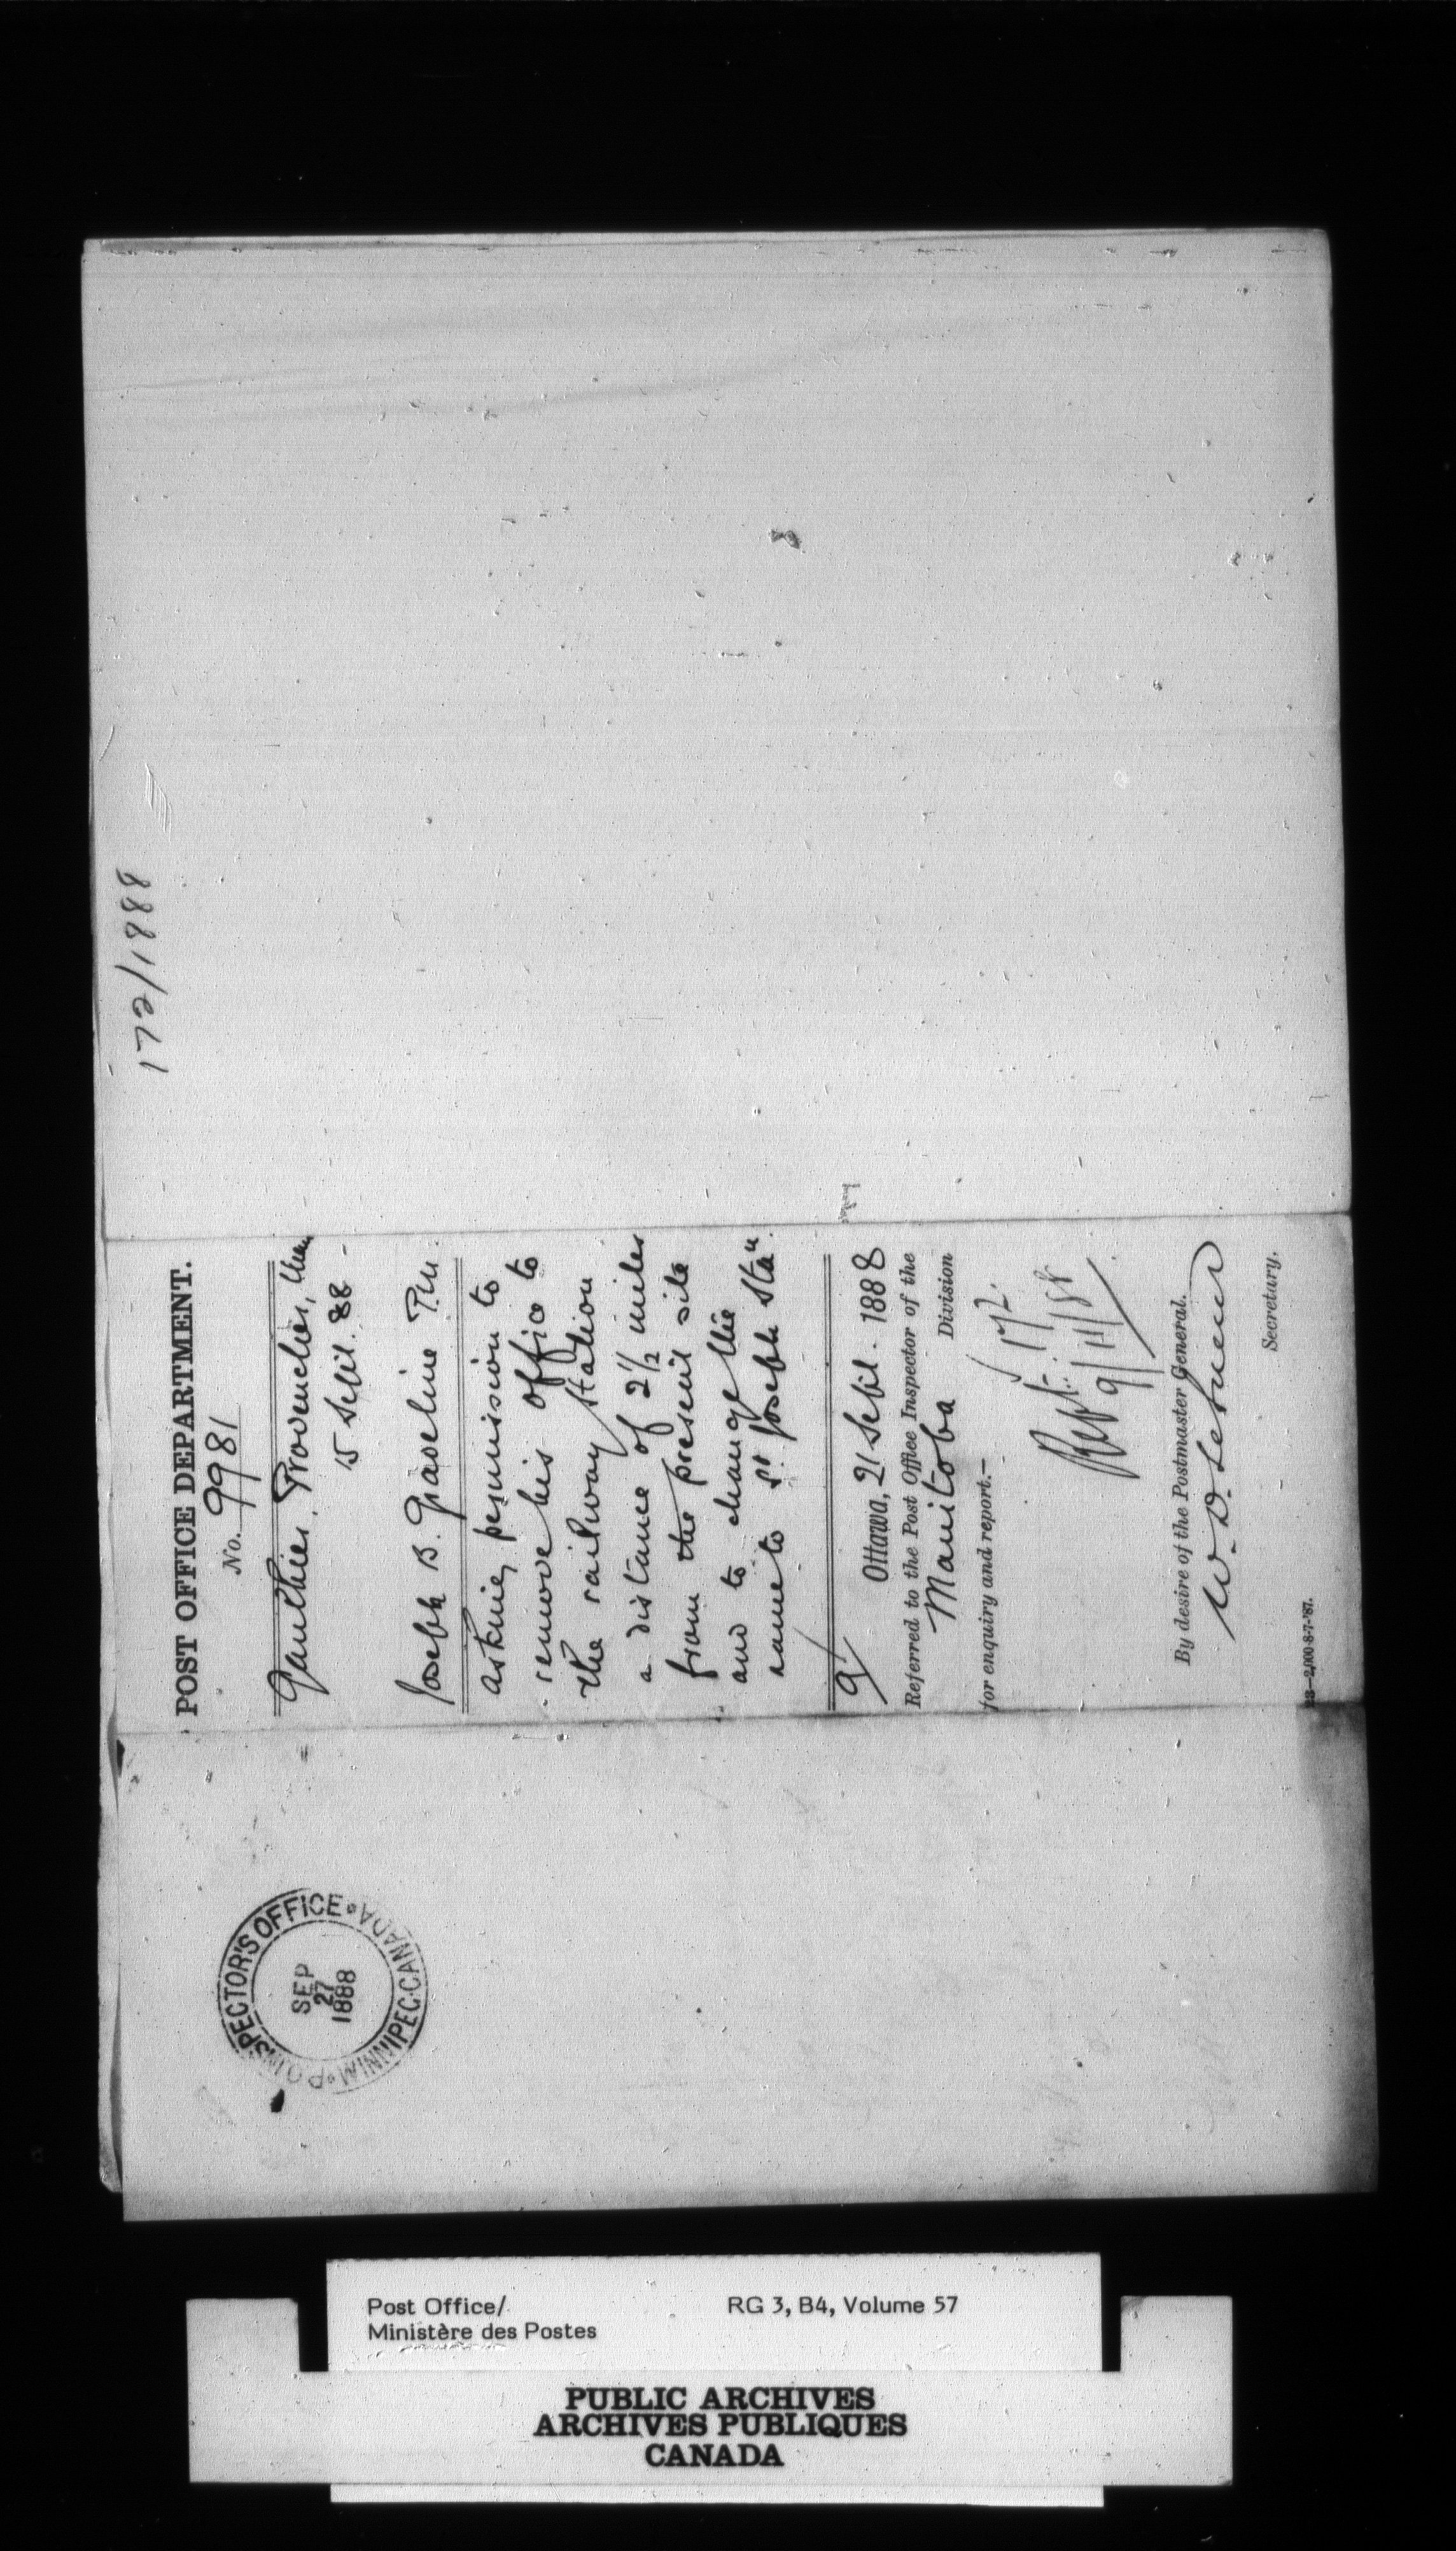 172/1888
POST OFFICE DEPARTMENT.
No. 9981
Gauthier, Provencher, Man
15 Sept. 88
Joseph B. Graveline P.M.
asking permission to
remove his office to
the railway station
a distance of 2½ miles
from the present site
and to change the
name to St. Joseph Stan.
9/
Ottawa, 21 Sept. 1888
Referred to the Post Office Inspector of the
Manitoba Division
for enquiry and report.—
Rept. 172
9/11/88
By desire of the Postmaster General.
W. D. LeSueur
Secretary.
23—2,000-8-7-'87.
P.O. INSPECTOR'S OFFICE
WINNIPEG. CANADA
SEP
27
1888
Post Office/
Ministère des Postes
RG 3, B4, Volume 57
PUBLIC ARCHIVES
ARCHIVES PUBLIQUES
CANADA